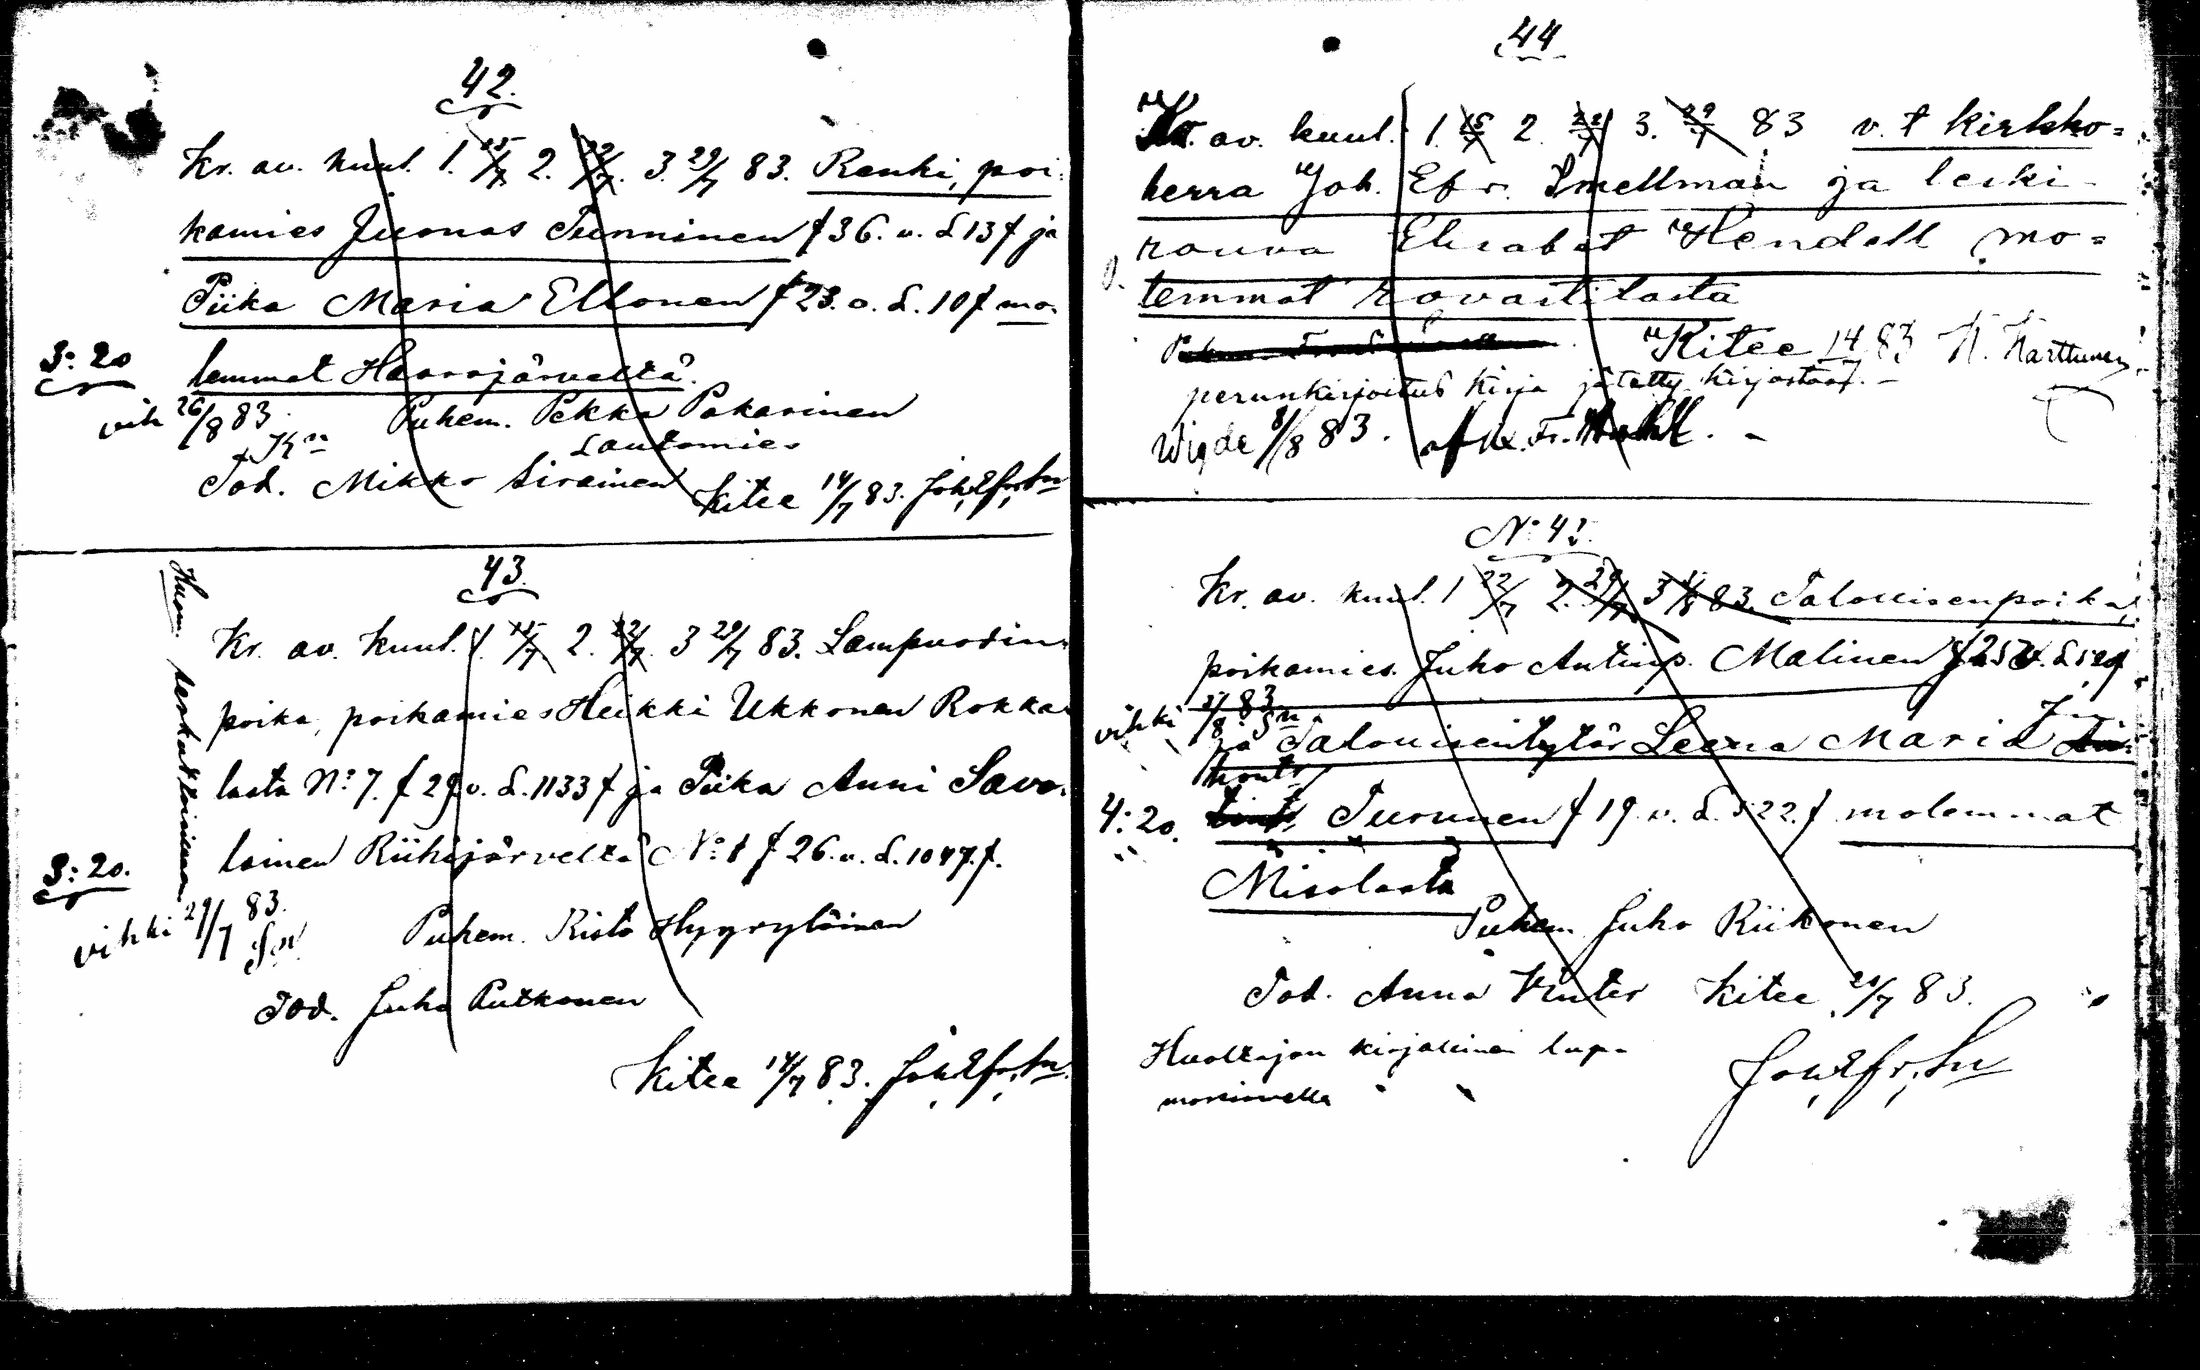 42.
Kr. av. kuul. 1. 15/7 2. 22/7. 3. 29/7 83. Renki, poi-
kamies Juonas Tunninen f 36. v. S. 13 f ja
Piika Maria Ellonen f 23. v. S. 10 f mo-
lemmat Haarajärveltä.
3: 20
vih 26/8 83.
Puhem. Pekka Pakarinen
Lautamies
Tod. Mikko Sirainen
Kitee 14/7 83. Joh. Efr. Sn
43.
Kr. av. kuul. 1. 15/7. 2. 22/7. 3 29/7 83. Lampuodin
poika, poikamies Heikki Ukkonen Rokka-
lasta No: 7. f 29 v. S. 1133 f ja Piika Anni Savo-
lainen Riihijärveltä No: 1 f 26. v. S. 1047. f.
Huom.
3: 20.
vihki 29/7 83.
Sn.
Puhem. Risto Hyyryläinen
Tod. Juho Putkonen
Kitee 14/7 83. Joh. Efr. Sn.
44
Kr. av. kuul. 1. 15/7 2. 22/7 3. 29/7 83 v. t kirkko=
herra Joh. Efr. Smellman ja leski-
rouva Elisabet Hendell mo=
lemmat Rovastilasta
Kitee 14/7 83 K. Karttunen
perunkirjoitus kirja jätetty kirjastoon. -
Wigde 8/8 83. af
No: 45.
Kr. av. kuul. 1 22/7 2. 29/7 3 5/8 83. Talollisenpoika,
poikamies. Juho Antinp. Malinen f 25 v. S.
vihki 27/8 83 Sn
ja Talollisentytär Leena Maria
4: 20.
Turunen f 19 v. S. 522. f molemmat
Misolasta
Puhem. Juho Riikonen
Tod. Anna Vinter Kitee 21/7 83.
Huoltajan kirjallinen lupa
morsiamella
Joh. Efr. Sn